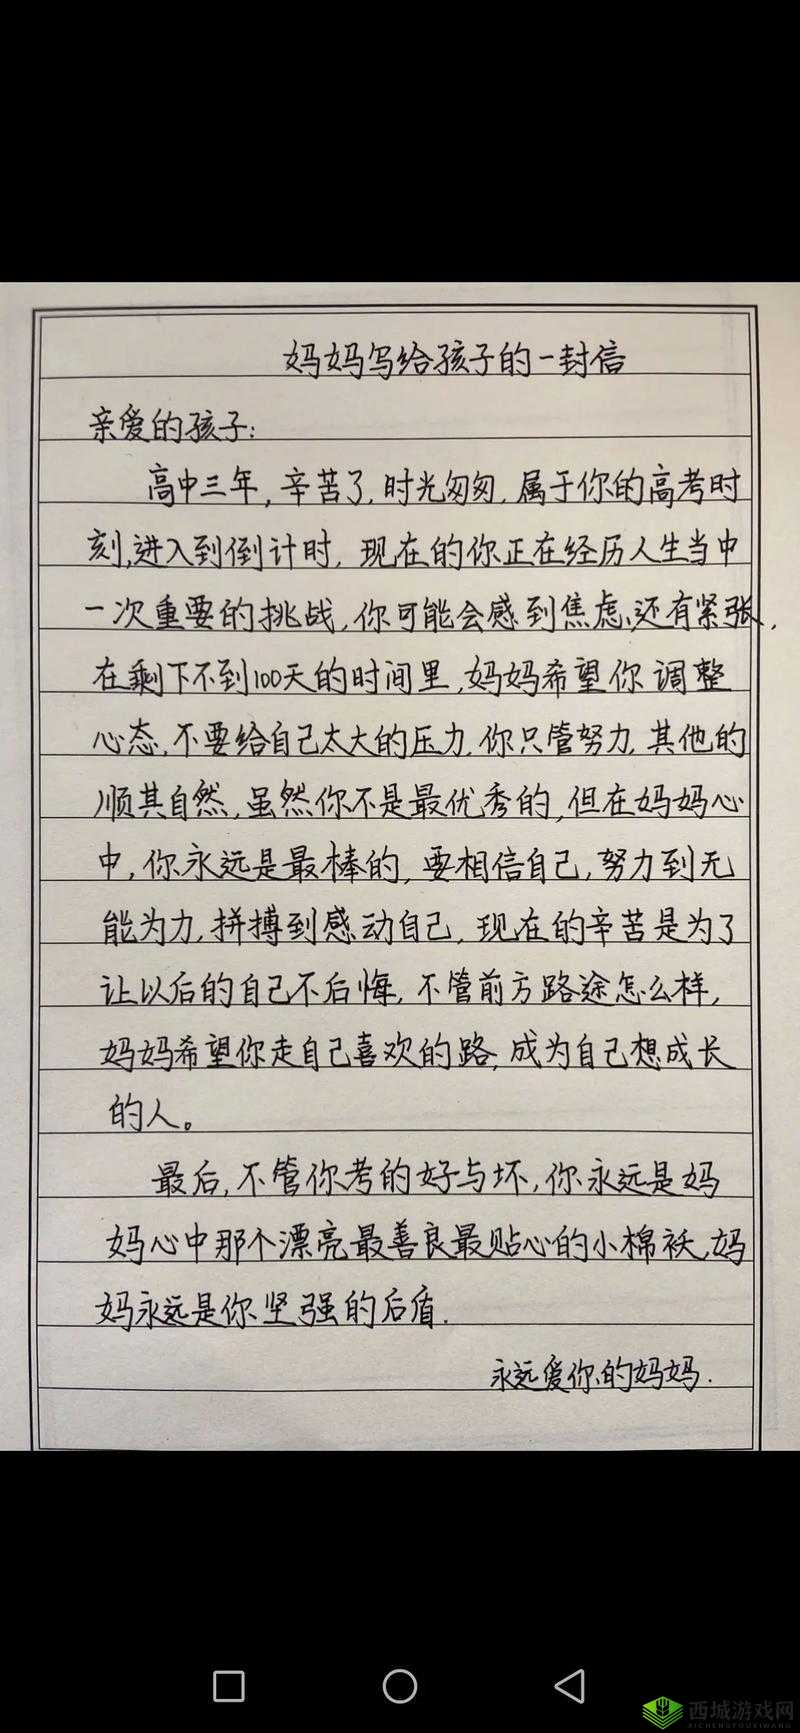 妈妈写给孩子的一封信
亲爱的孩子:
高中三年,辛苦了,时光匆匆,属于你的高考时
刻,进入到倒计时,现在的你正在经历人生当中
一次重要的挑战,你可能会感到焦虑,还有紧张,
在剩下不到100天的时间里,妈妈希望你调整
心态,不要给自己太大的压力,你只管努力,其他的
顺其自然,虽然你不是最优秀的,但在妈妈心
中,你永远是最棒的,要相信自己,努力到无
能为力,拼搏到感动自己,现在的辛苦是为了
让以后的自己不后悔,不管前方路途怎么样,
妈妈希望你走自己喜欢的路,成为自己想成长
的人。
最后,不管你考的好与坏,你永远是妈
妈心中那个漂亮最善良最贴心的小棉袄,妈
妈永远是你坚强的后盾.
永远爱你的妈妈.
西城游戏网
XICHENGYOUXIWANG